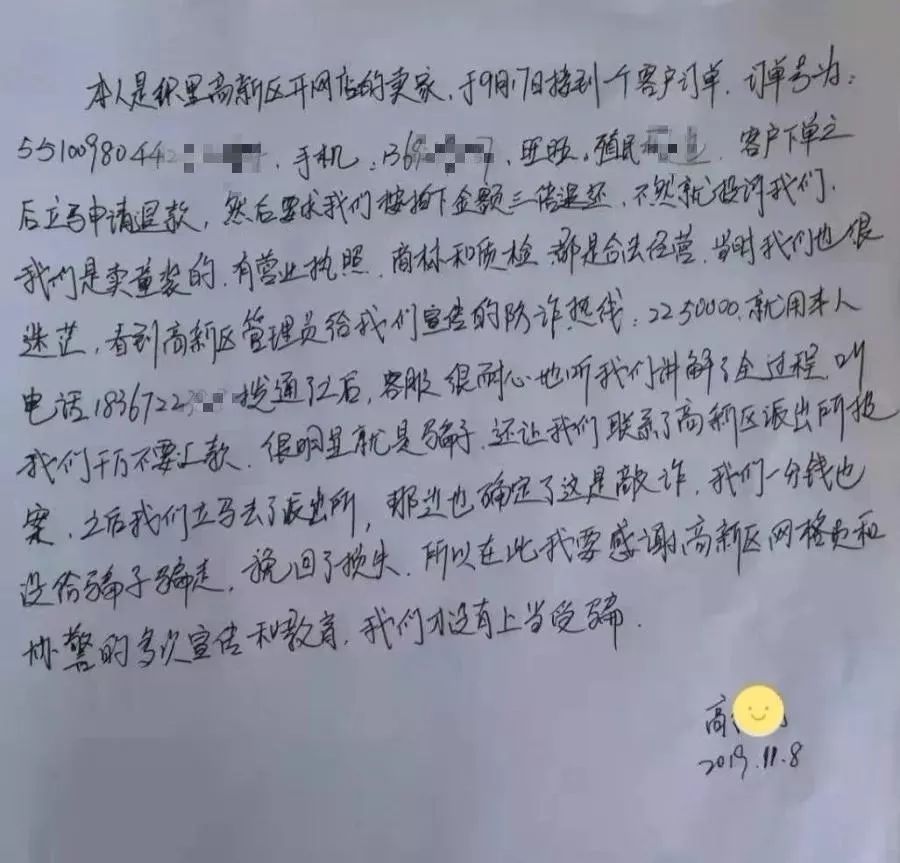 本人是织里高新区开网店的卖家,于9月17日接到一个客户订单.订单号为:
5510098044 手机:1369 旺旺:殖民 客户下单之
后立马申请退款,然后要求我们按拍下金额三倍退还,不然就投诉我们.
我们是卖童装的,有营业执照.商标和质检.都是合法经营.当时我们也很
迷茫,看到高新区管理员给我们宣传的防诈热线:2250000.就用本人
电话1836722 拨通了后,客服很耐心地听我们讲解了全过程.叫
我们千万不要汇款.很明显就是骗子.还让我们联系了高新区派出所报
案.之后我们立马去了派出所,那边也确定了这是敲诈.我们一分钱也
没给骗子骗走.挽回了损失.所以在此我要感谢高新区网格员和
协警的多次宣传和教育.我们才没有上当受骗.
高
2019.11.8